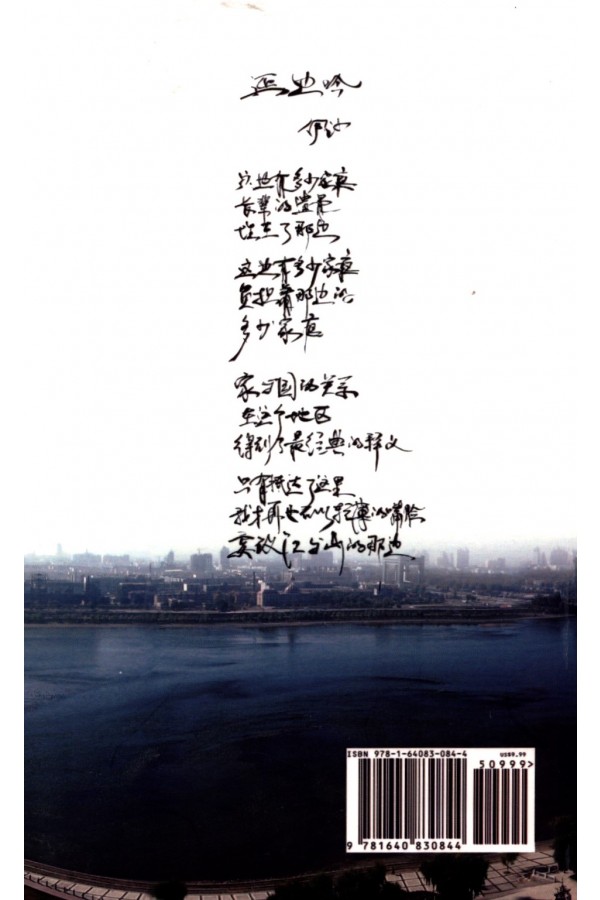 延边吟
这边有多少家庭
长辈的
在了那边
这边有多少家庭
负担着那边的
多少家庭
家与国的关系
在这个地区
得到了最经典的释义
只有抵达了这里
我才再也不以轻薄的嘴脸
江与山的那边
ISBN 978-1-64083-084-4
US$9.99
50999>
9 781640 830844